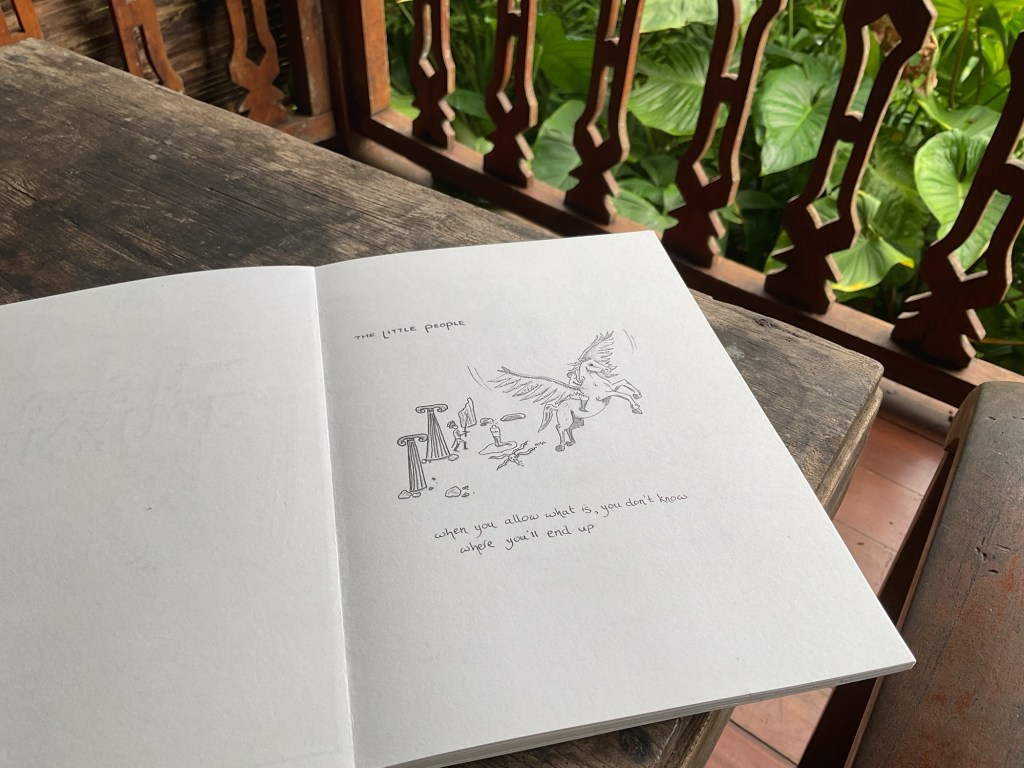 THE LITTLE PEOPLE
when you allow what is, you don't know
where you'll end up